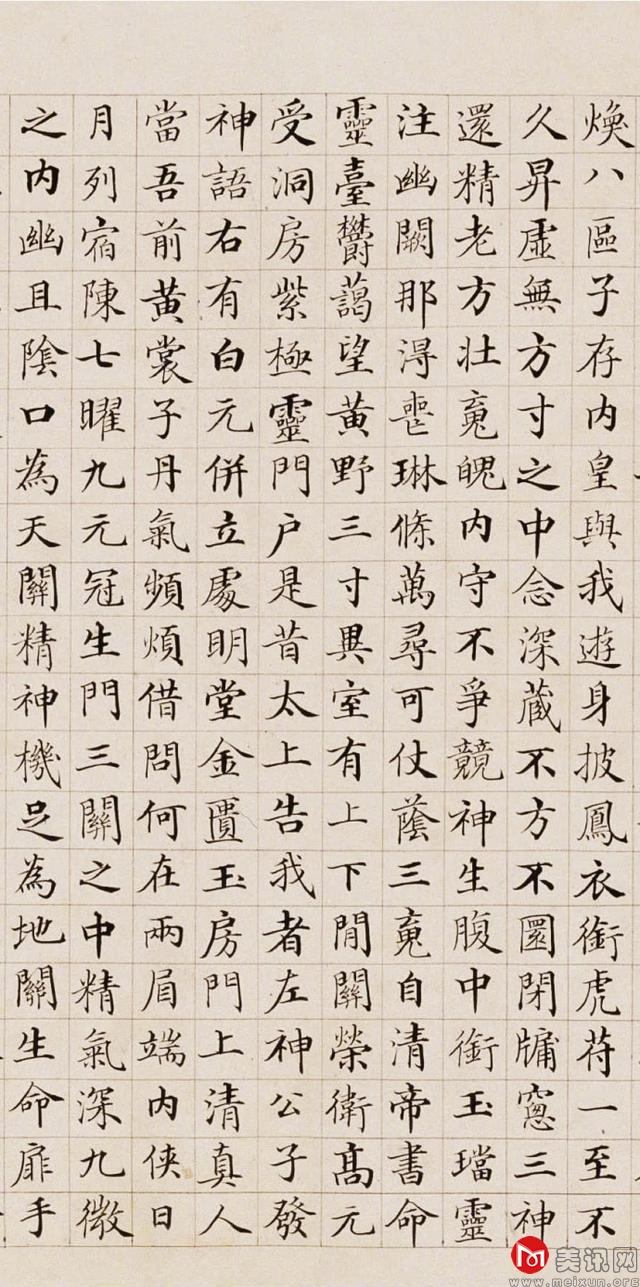 煥八區子存内皇與我遊身披鳳衣銜虎苻一至不
久昇虛無方寸之中念深蔵不方不圓閉牖窻三神
還精老方壯䰟魄内守不爭競神生腹中銜玉璫靈
注幽闕那淂喪琳條萬尋可仗蔭三䰟自清帝書命
靈臺欝藹望黄野三寸異室有上下閒關榮衛髙元
受洞房紫極靈門户是昔太上告我者左神公子發
神語右有白元併立處明堂金匱玉房門上清真人
當吾前黄裳子丹氣頻煩借問何在兩眉端内俠日
月列宿陳七曜九元冠生門三關之中精氣深九微
之内幽且陰口為天關精神機足為地關生命扉手
美讯网
www.meixun.org